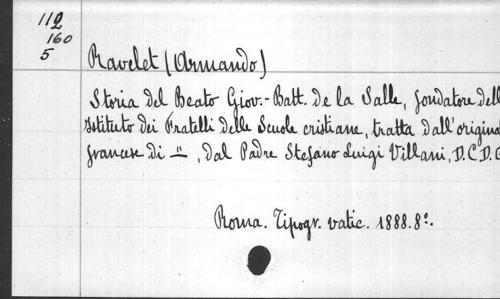 112
160
5
Ravelet (Armando)
Storia del Beato Giov.- Batt. de la Salle, fondatore dell
Istituto dei Fratelli delle Scuole cristiane, tratta dall'origina
francese di =, dal Padre Stefano Luigi Villani, D.C.D.G
Roma. Tipogr. vatic. 1888. 8º.